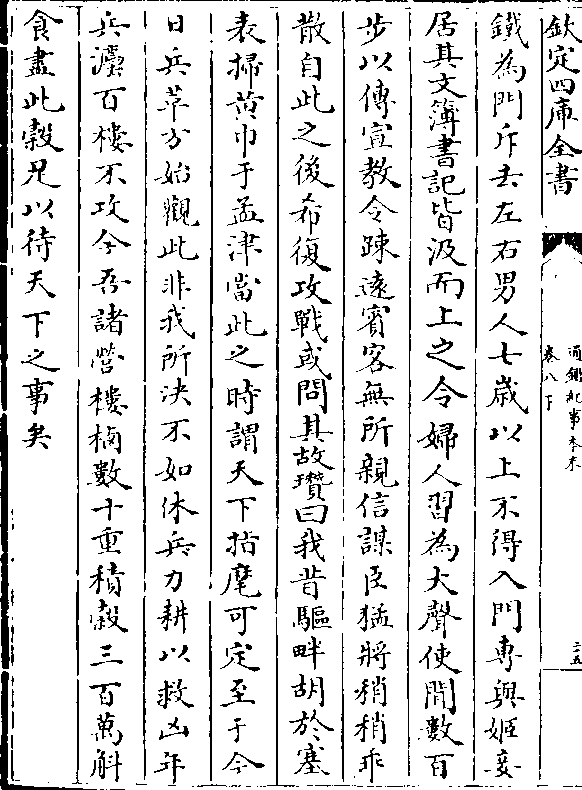 欽定四庫全書
通鑑紀事本末
卷八下
三五
鐵為門斥去左右男人七歳以上不得入門專與姬妾
居其文簿書記皆汲而上之令婦人習為大聲使聞數百
步以傳宣教令踈逺賔客無所親信謀臣猛將稍稍乖
散自此之後希復攻戰或問其故瓚曰我昔驅畔胡於塞
表掃黄巾于孟津當此之時謂天下指麾可定至于今
日兵革方始觀此非我所決不如休兵力耕以救凶年
兵灋百樓不攻今吾諸營樓櫓數十重積榖三百萬斛
食盡此榖足以待天下之事矣